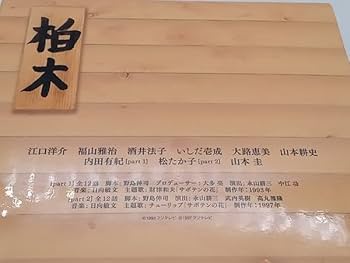 柏木
江口洋介 福山雅治 酒井法子 いしだ壱成 大路恵美 山本耕史
内田有紀[part 1] 松たか子[part 2] 山本 圭
[part 1]全12話 脚本:野島伸司 プロデューサー:大多 亮 演出:永山耕三 中江 功
音楽:日向敏文 主題歌:財津和夫「サボテンの花」 制作年:1993年
[part 2]全12話 脚本:野島伸司 演出:永山耕三 武内英樹 高丸雅隆
音楽:日向敏文 主題歌:チューリップ「サボテンの花」 制作年:1997年
©1993フジテレビ ©1997フジテレビ